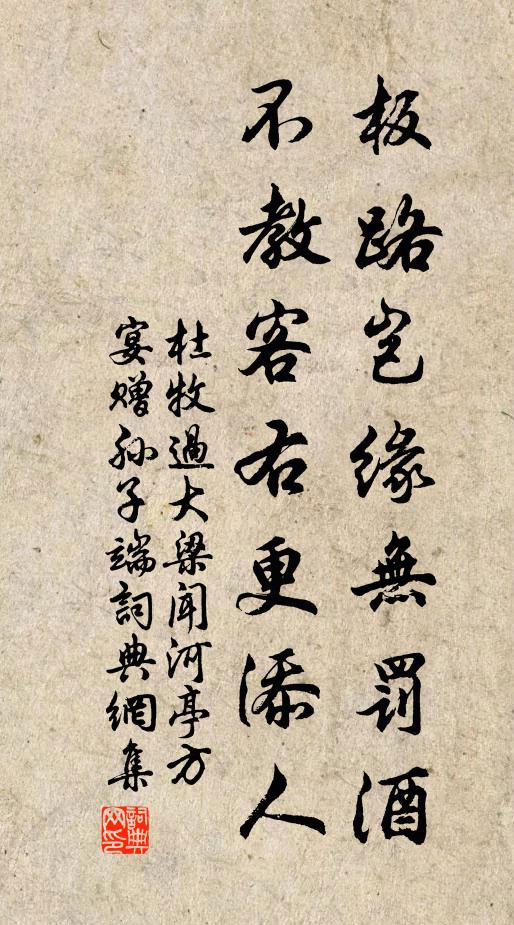 板路岂缘無罰酒
不教客右更添人
杜牧過大梁聞河亭方
宴赠孙子端詞典網集
詞典网印